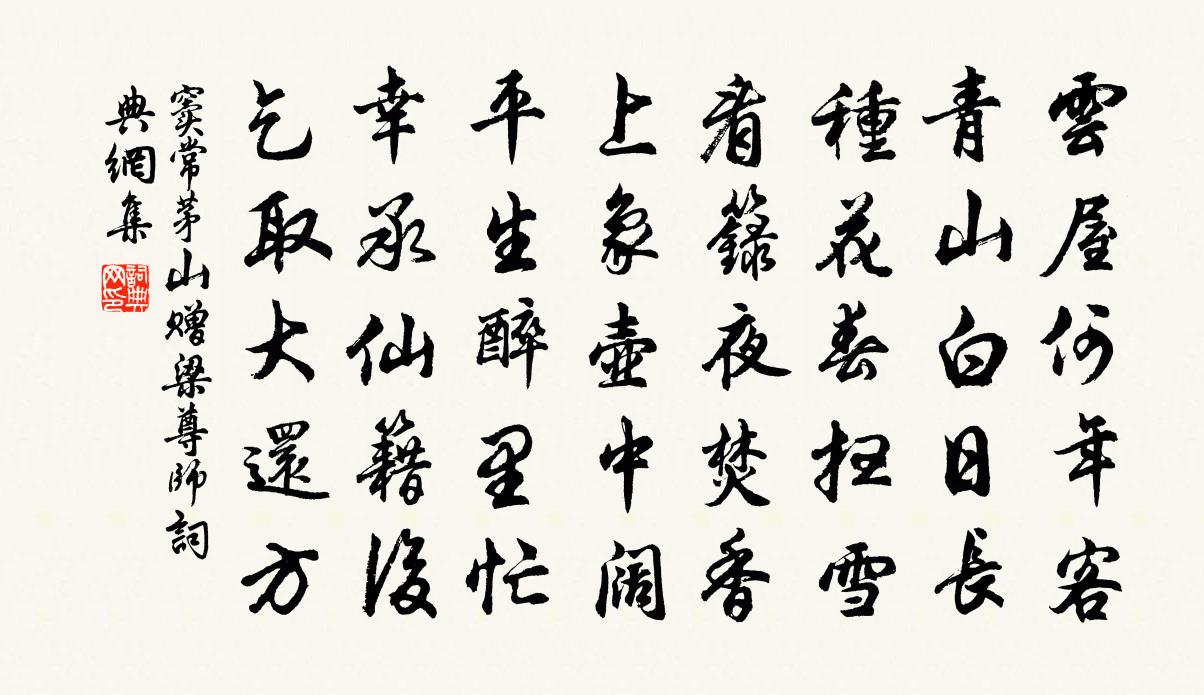 雲屋何年客
青山白日長
種花春掃雪
看籙夜焚香
上象壺中闊
平生醉里忙
幸承仙籍後
乞取大還方
竇常茅山赠梁尊師詞
典網集
詞典
网印